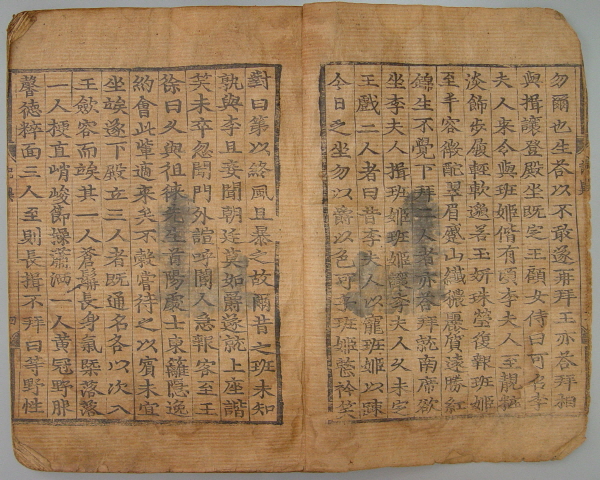 勿爾也生答以不敢遂再拜王亦答拜相
與揖讓登殿坐旣定王顧女侍曰可召李
夫人來令與班姬偕有頃李夫人至靚粧
淡飾步屨輕軟邈若玉姸珠瑩復報班姬
至丰容微配翠眉蹙山纖穠麗質遠勝紅
錦生不覺下拜二人者亦答拜就南席欲
坐李夫人揖班姬班姬讓李夫人久未定
王戲二人者曰昔李夫人以寵班姬以踈
今日之坐勿以爵以色可乎班姬整衿笑
對曰第以終風且暴之故爾昔之班未知
孰與李且妾聞朝廷莫如爵遂就上座諧
笑未卒忽聞門外諠呼閽人急報客至王
徐曰久與徂徠先生首陽處士東籬隱逸
約會此輩適來矣不穀嘗待之以賓未宜
坐竢遂下殿立三人者旣通名各以次入
王斂容而竢其一人蒼髥長身氣槩落落
一人梗直峭峻節操瀟洒一人黃冠野服
馨德粹面三人至則長揖不拜曰等野性